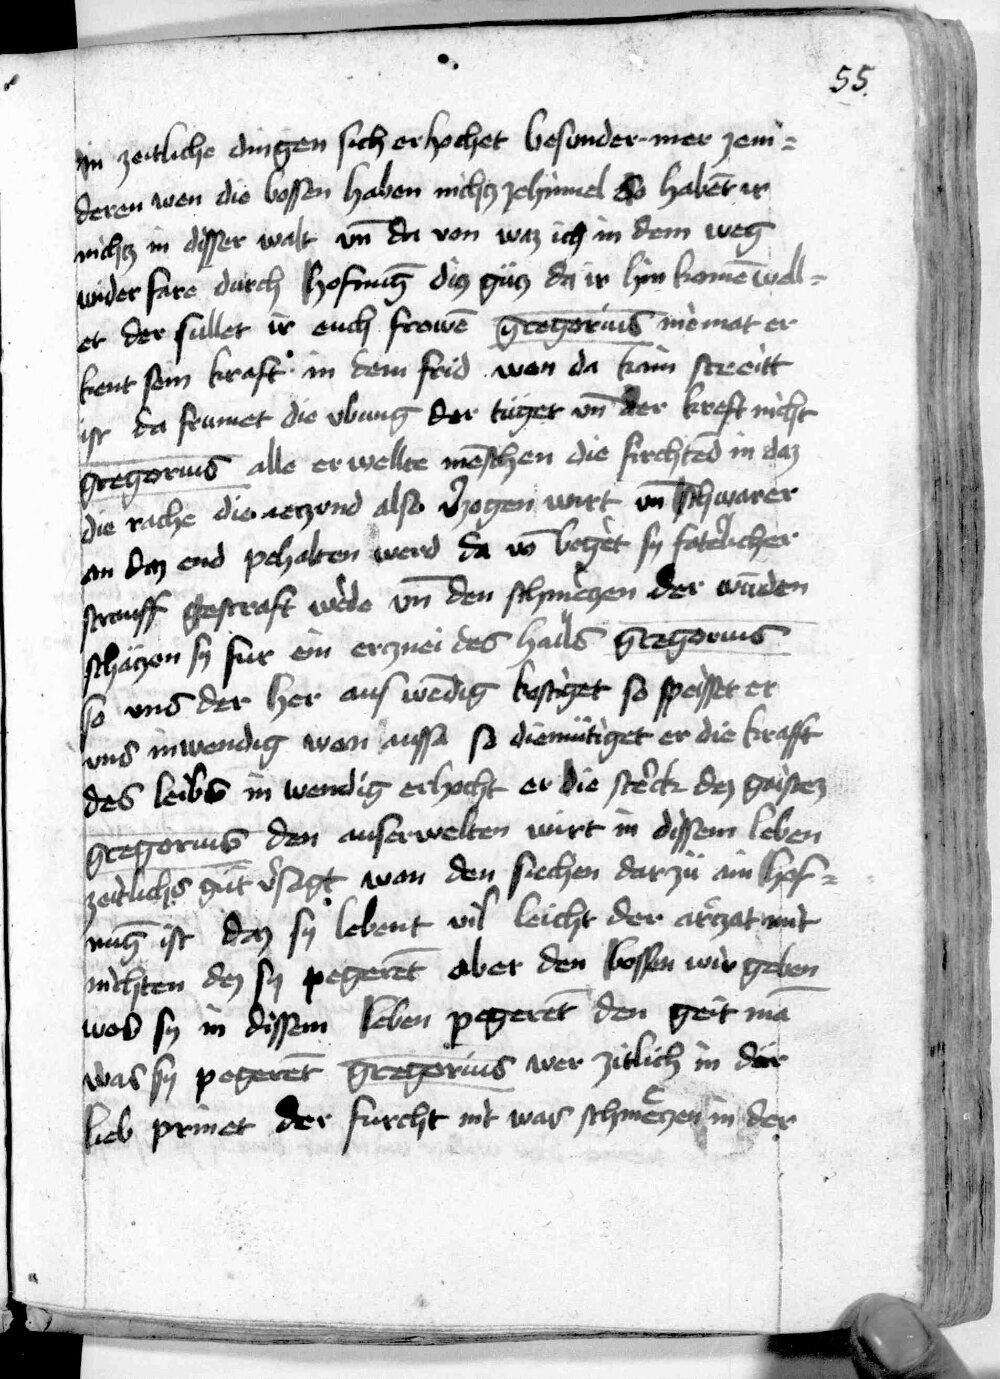 55.
in zeitliche dingen sich erhochet besunder mer zem=
deren wen die bossen haben nichtz zehimel So habēt ir
nichtz in disser walt vn̄ da von waz ich in dem weg
wider fare durch hofnūg diz gütz da ir hin komē well=
et der sullet ir euch frowē gregorius niemat er
kent sein kraft in dem frid wen da kain streitt
ist da frumet die vbung der tüget vn̄ der kreft nicht
gregorius alle erwellte mēschen die firchtēd in daz
die rache die ieczund also v̓zogen wirt vn̄ schwarer
an daz end pehalten werd da vō beget sy faterlicher
strauff gestraft wede vn̄ den schmeczen der wūden
schäczen sy fur ein erznei des hails gregorius
so vns der her aus wēdig kestiget so speisset er
vns inwendig wan aussa so diemütiget er die krafft
des leibs in wendig erhocht er die sterk dez gaistez
gregorius den auserwelten wirt in dissem leben
zeitlichs güt v̓sagt wan den siechen darzü ain hof=
nūg ist daz sy lebent vil leicht der arczat mit
nichten dez sy pegerēt aber den bossen wir geben
was sy in dissem leben pegerēt den geit mā
was sy pegerēt gregorius wer zitlich in der
lieb prinet der furcht nit was schmeczen in der